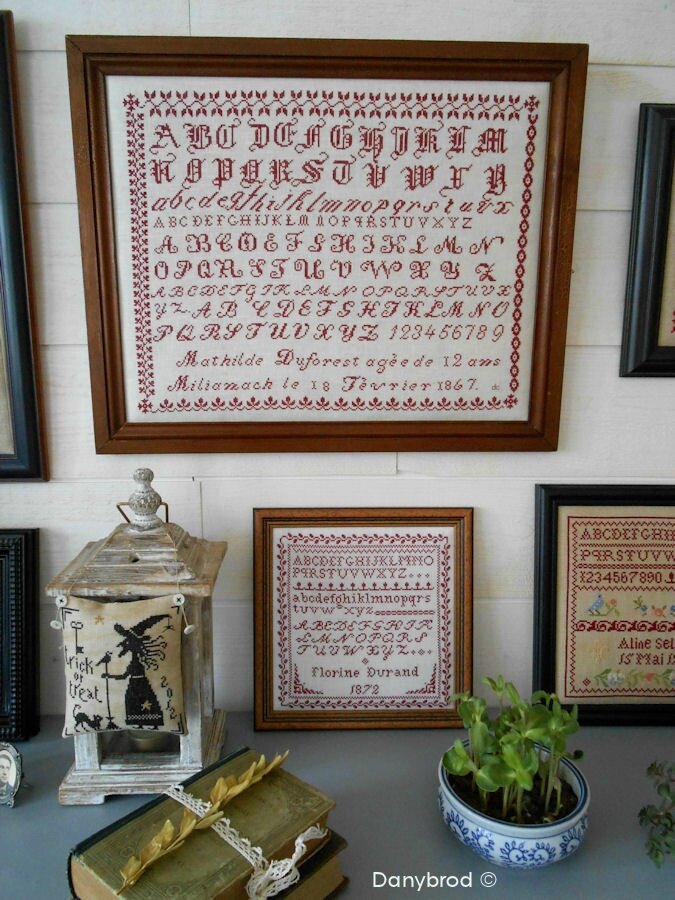 A B C D E F G H I J K L M
N O P Q R S T U V W X Y
a b c d e f g h i j k l m n o p q r s t u v x
A B C D E F G H I J K L M N O P Q R S T U V X Y Z
A B C D E F G H I J K L M N
O P Q R S T U V W X Y Z
A B C D E F G H I J K L M N O P Q R S T U V X
Y Z A B C D E F G H I J K L M N O
P Q R S T U V X Y Z 1 2 3 4 5 6 7 8 9
Mathilde Duforest agèe de 12 ans
Miliamach le 18 Février 1867.
ABCDEFGHIJKLMNO
PQRSTUVWXYZ
abcdefghiklmnopqrs
tuvwxyz
ABCDEFGHIK
LMNOPQRS
TUVWXYZ
Florine Durand
1872
ABCDEFGHI
PQRSTUVW
1234567890
Aline
15 Mai
trick
or
treat
2012
Danybrod ©